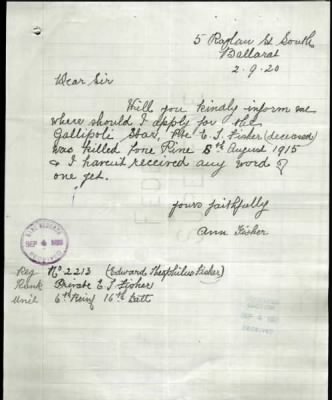 5 Raglan St South
Ballarat
2.9.20
Dear Sir
Will you kindly inform me
where should I apply for the
Gallipoli Star, Pte E. T. Fisher (deceased)
was killed Lone Pine 8th August 1915
& I havent received any word of
one yet.
yours faithfully
Ann Fisher
BASE RECORDS
SEP 4 1920
RECEIVED
Reg No 2213 (Edward Theophilus Fisher)
Rank Private E. T. Fisher
Unit 6th Reinf 16th Batt
SEP 4
RECEIVED